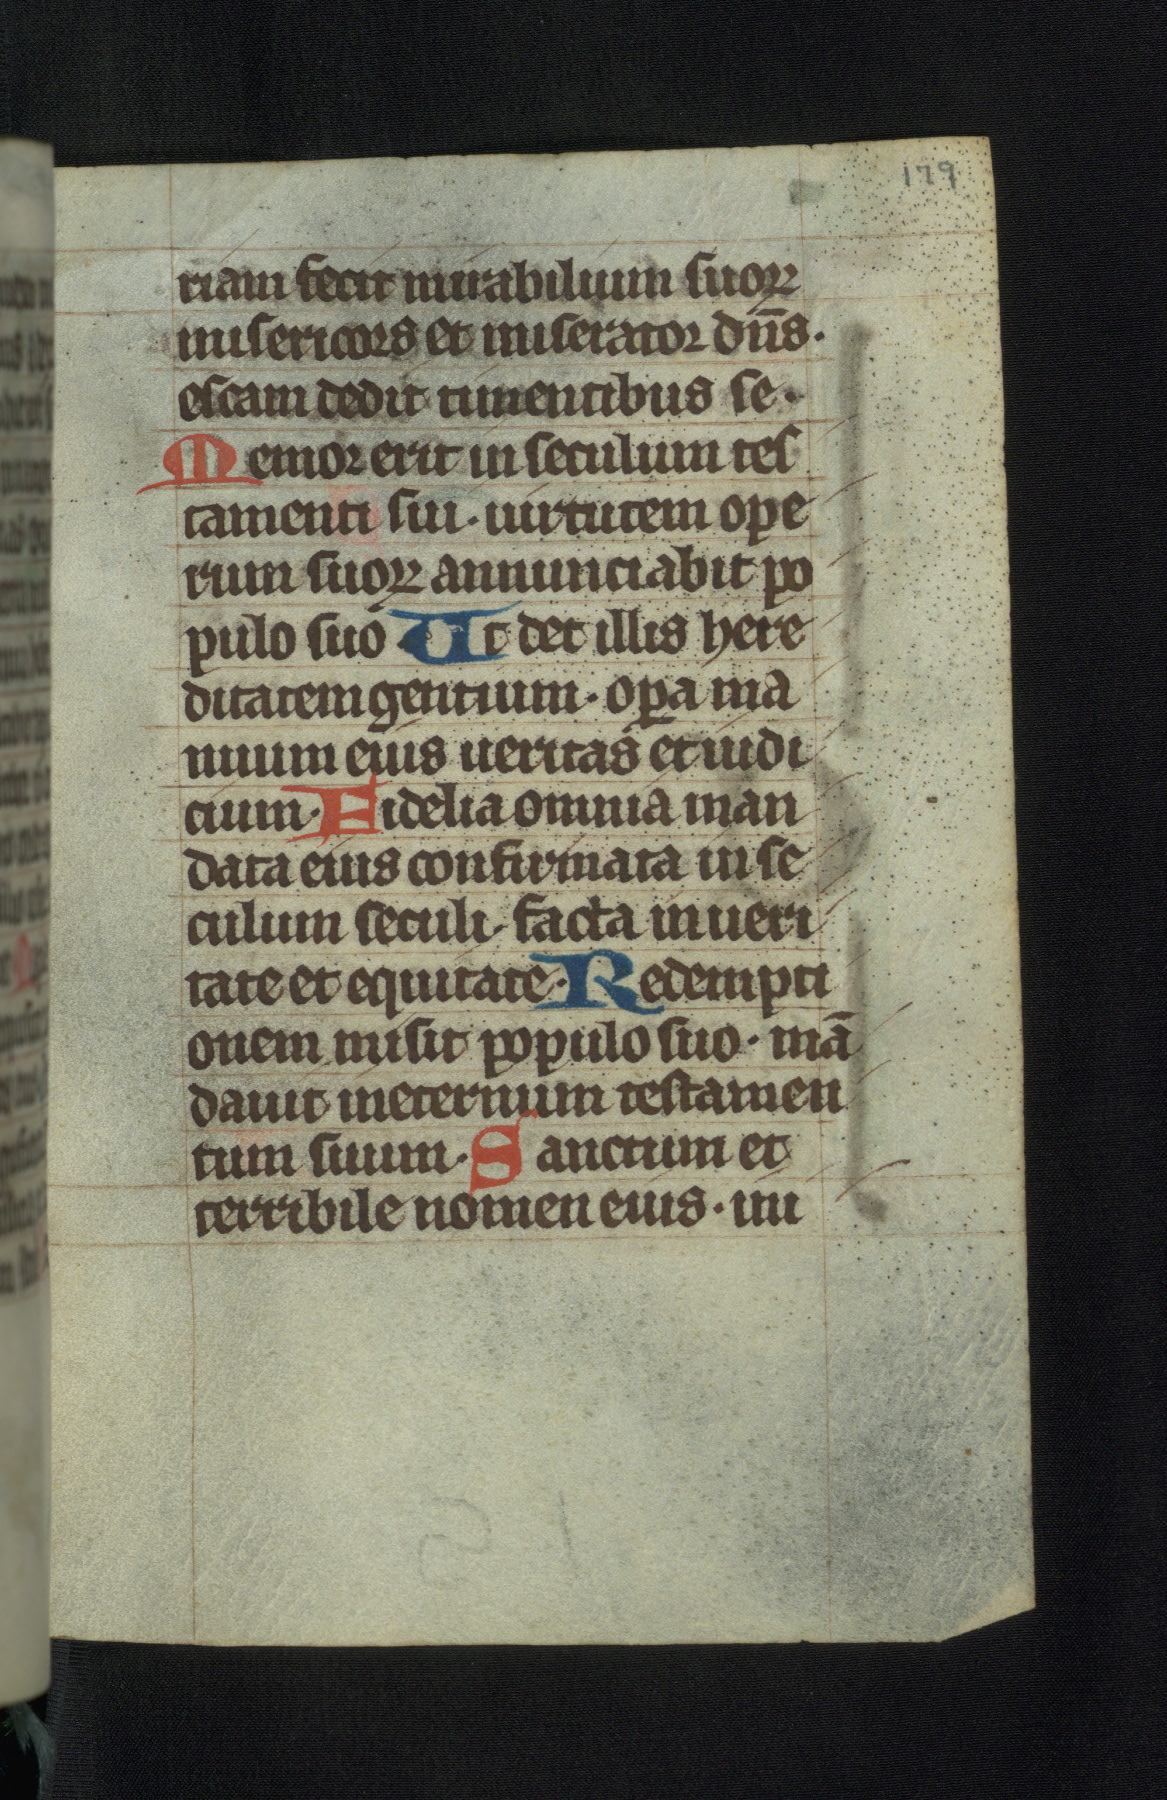 179
riam fecit mirabilium suoꝝ
misericors et miserator dn̄s.
escam dedit timentibus se.
Memor erit in seculum tes
tamenti sui. uirtutem ope
rum suoꝝ annunciabit po
pulo suo. Ut det illis here
ditatem gentium. opa ma
nuum eius ueritas et iudi
cium. Fidelia omnia man
data eius confirmata in se
culum seculi. facta in ueri
tate et equitate. Redempti
onem misit populo suo. mā
dauit ineternum testamen
tum suum. Sanctum et
terribile nomen eius. ini